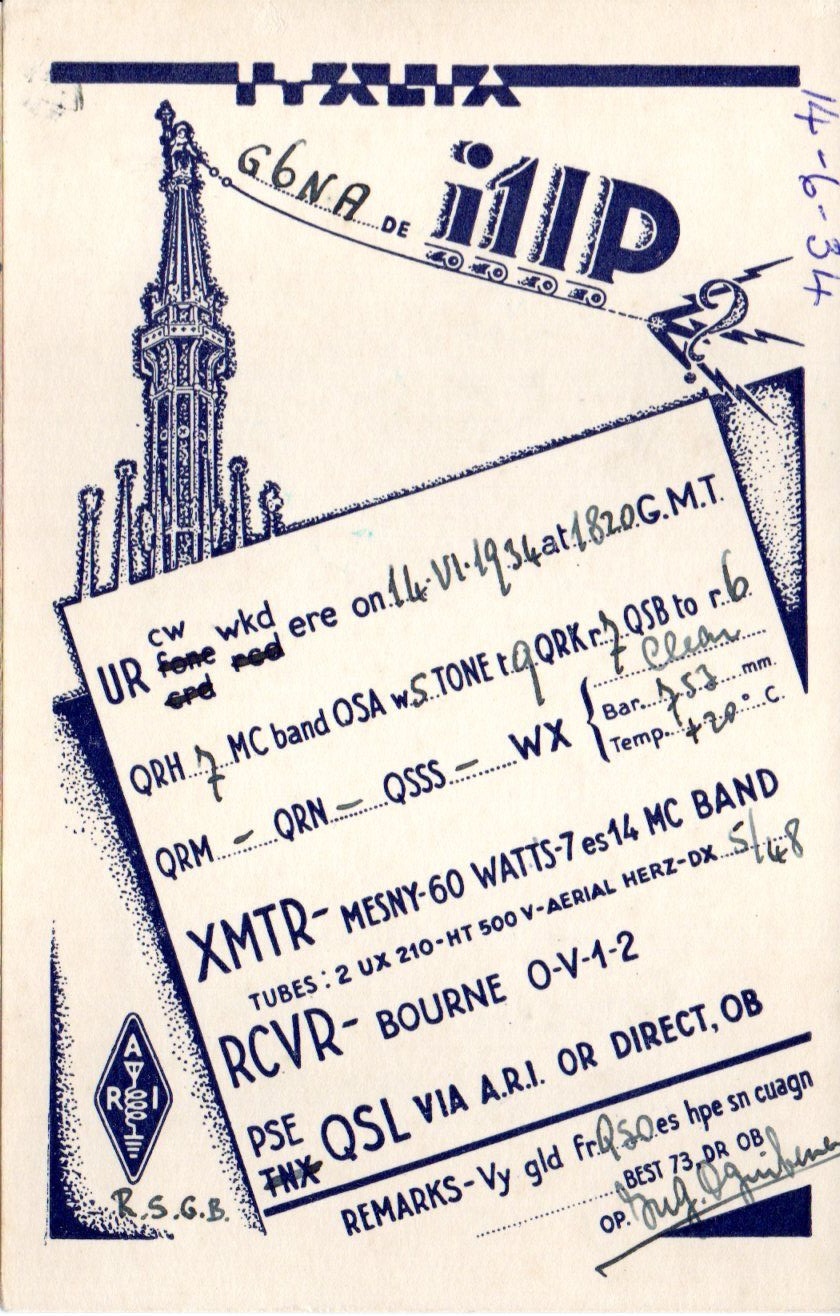 ITALIA
14-6-34
G6NA DE i1IP
?
UR cw wkd ere on 14·VI·1934 at 1820 G.M.T.
fone rcd
crd
QRH 7 MC band QSA w5 TONE t9 QRK r7 QSB to r6
Clear
Bar. 753 mm.
QRM - QRN - QSSS - WX
Temp. +20° C.
XMTR- MESNY-60 WATTS-7 es 14 MC BAND
TUBES: 2 UX 210-HT 500 V-AERIAL HERZ-DX 5/48
RCVR- BOURNE O-V-1-2
PSE QSL VIA A.R.I. OR DIRECT, OB
TNX
REMARKS-Vy gld fr QSO es hpe sn cuagn
BEST 73, DR OB
OP.
A
R I
R.S.G.B.